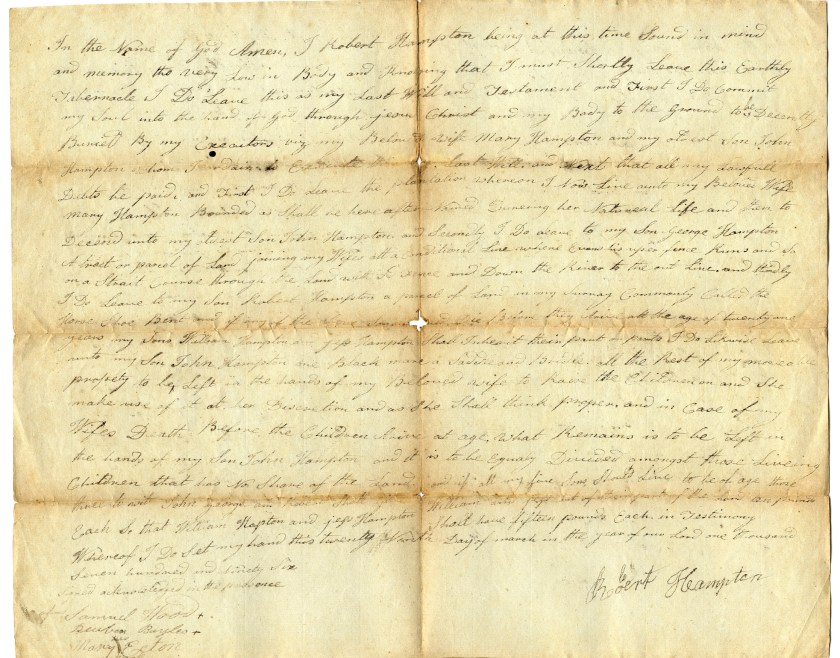 In the Name of God Amen, I Robert Hampton being at this time Sound in mind
and memory tho very Low in Body and Knowing that I must Shortly Leave this Earthly
Tibernacle I Do Leave this as my Last Will and Testament and First I Do Commit
my Soul into the hand of God through jesus Christ and my Body to the Ground to be Decently
Buried By my Executors viz my Beloved wife Mary Hampton and my oldest Son John
Hampton whom I ordain to Execute this Last Will and Next that all my Lawfull
Debts be paid, and First I Do Leave the plantation whereon I now Live unto my Beloved Wife
mary Hampton Bounded as Shall be here after Named Dureing her Natureal life and then to
Decend unto my oldest Son John Hampton and Secondly I Do Leave to my Son George Hampton
A tract or parcel of Land joining my Wifes at a Conditional Line where fince Runs and So
on a Strait Course through the Land with fence and Down the River to the out Line. and thirdly
I Do Leave to my Son Robert Hampton a parcel of Land in my Survay Commonly Called the
Horse Shoe Bent and if any of the Before they Arive at the age of twenty one
years my Sons William Hampton and jess Hampton Shall Inherit their part or parts I Do Likwise Leave
unto my Son John Hampton one Black mare a Saddle and Bridle. all the Rest of my moveable
propety to be Left in the hands of my Beloved wife to Raise the Children on and She
make use of it at her Descretion and as She Shall think proper. and in Case of my
Wifes Death, Before the Children Arive at age, what Remains is to be Left in
the hands of my Son John Hampton and it is to be Equaly Divided amongst those Liveing
Children that has No Share of the Land and if all my five Sons Should Live to be of age then
three to wit John George and Robert Shall William and jess out of their part of the Land
Each So that William Hapton and jess Hampton Shall have fifteen pounds Each in Testimony
Whereof I Do Set my hand this twenty Day of march in the year of our Lord one thousand
Seven hundred and Ninety Six
acknowledged in the presence
Robert Hampton
Samuel Wood +
Beuben Bayles +
Mary Elton